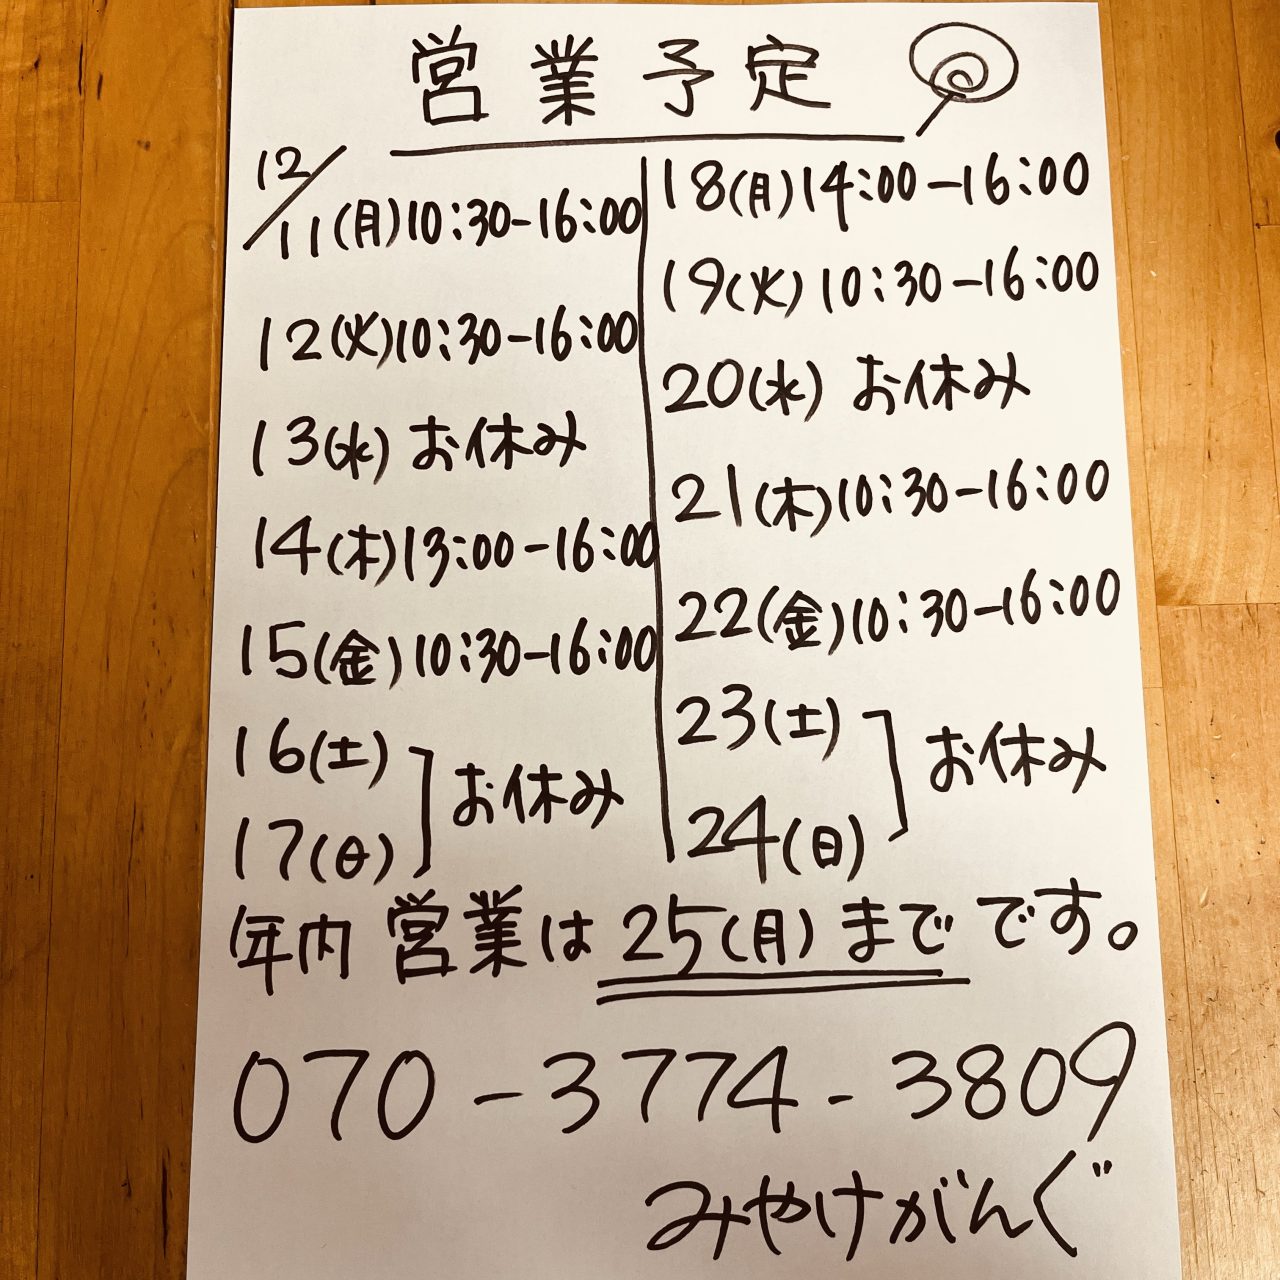 営業予定
12/11(月)10:30-16:00
12(火)10:30-16:00
13(水)お休み
14(木)13:00-16:00
15(金)10:30-16:00
16(土)
17(日)
お休み
18(月)14:00-16:00
19(火)10:30-16:00
20(水)お休み
21(木)10:30-16:00
22(金)10:30-16:00
23(土)
24(日)
お休み
年内営業は25(月)までです。
070-3774-3809
みやけがんぐ